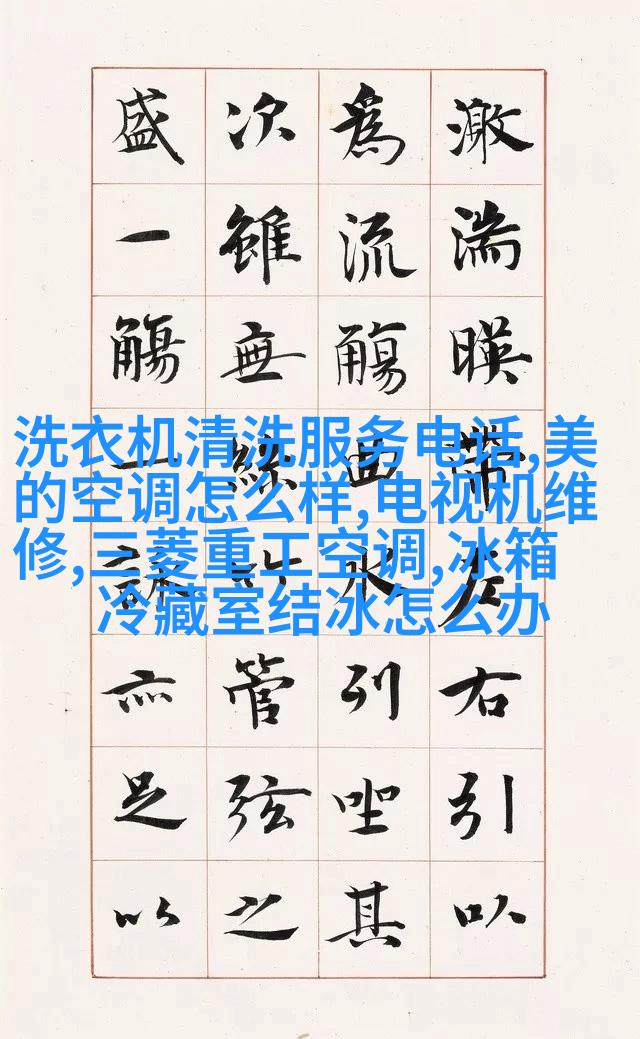 激湍暎帶左右引以
為流觴曲水列坐其
次雖無絲竹管弦之
盛一觴一詠亦足以
洗衣机清洗服务电话,美
的空调怎么样,电视机维
修,三菱重工空调,冰箱
冷藏室结冰怎么办